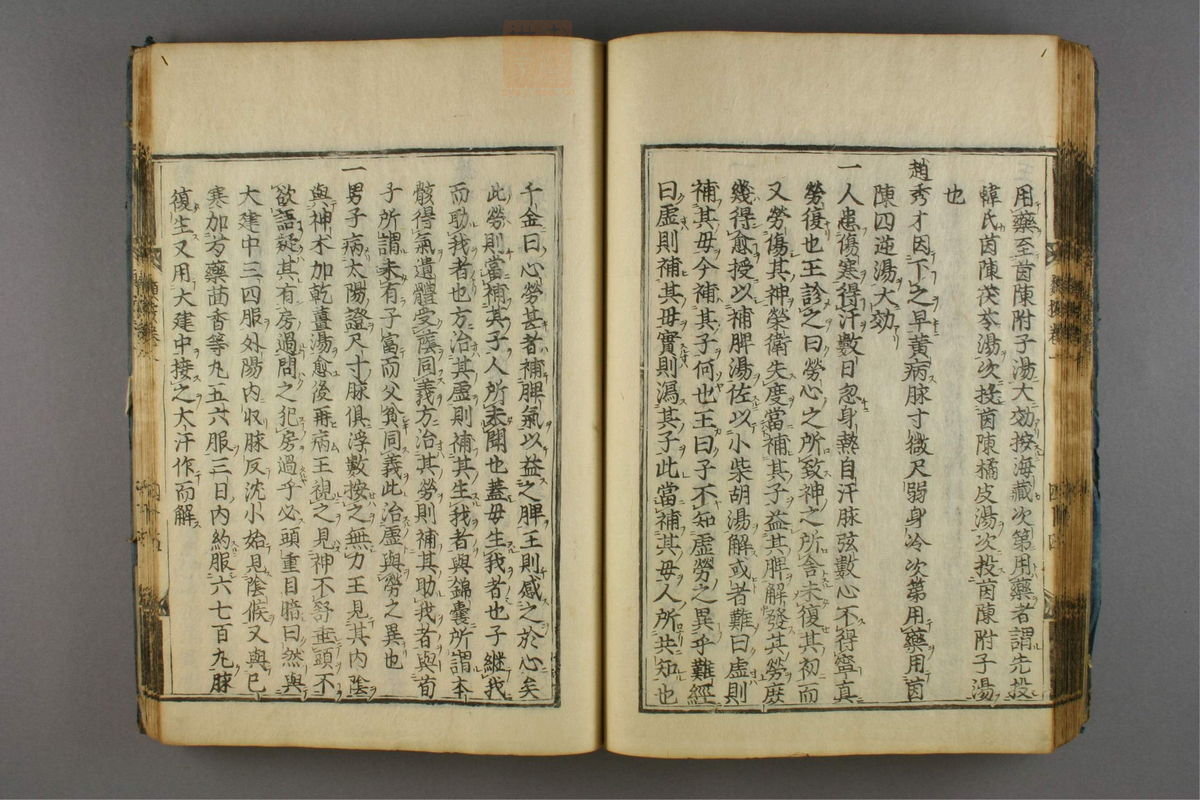 用藥至茵陳附子湯大効按海藏次第用藥者謂先投
韓氏茵陳茯苓湯次投茵陳橘皮湯次投茵陳附子湯
也
趙秀才因下之早黄病脉寸微尺弱身冷次第用藥用茵
陳四逆湯大効
一人患傷寒得汗數日忽身熱自汗脉弦數心不得寧真
勞復也王診之曰勞心之所致神之所舎未復其初而
又勞傷其神榮衛失度當補其子益其脾解發其勞庶
幾得愈授以補脾湯佐以小柴胡湯解或者難曰虚則
補其母今補其子何也王曰子不知虚勞之異乎難經
曰虚則補其母實則瀉其子此當補其母人所共知也
千金曰心勞甚者補脾氣以益之脾王則感之於心矣
此勞則當補其子人所未聞也蓋母生我者也子継我
而助我者也方治其虚則補其生我者與錦嚢所謂本
骸得氣遺體受蔭同義方治其勞則補其助我者與荀
子所謂未有子富而父貧同義此治虚與勞之異也
一男子病太陽證尺寸脉俱浮數按之無力王見其内陰
與神术加乾薑湯愈後再病王視之見神不舒垂頭不
欲語疑其有房過問之犯房過乎必頭重目暗曰然與
大建中三四服外陽内収脉反沈小始見陰候又與已
寒加芍藥茴香等丸五六服三日内約服六七百丸脉
復生又用大建中接之大汗作而解